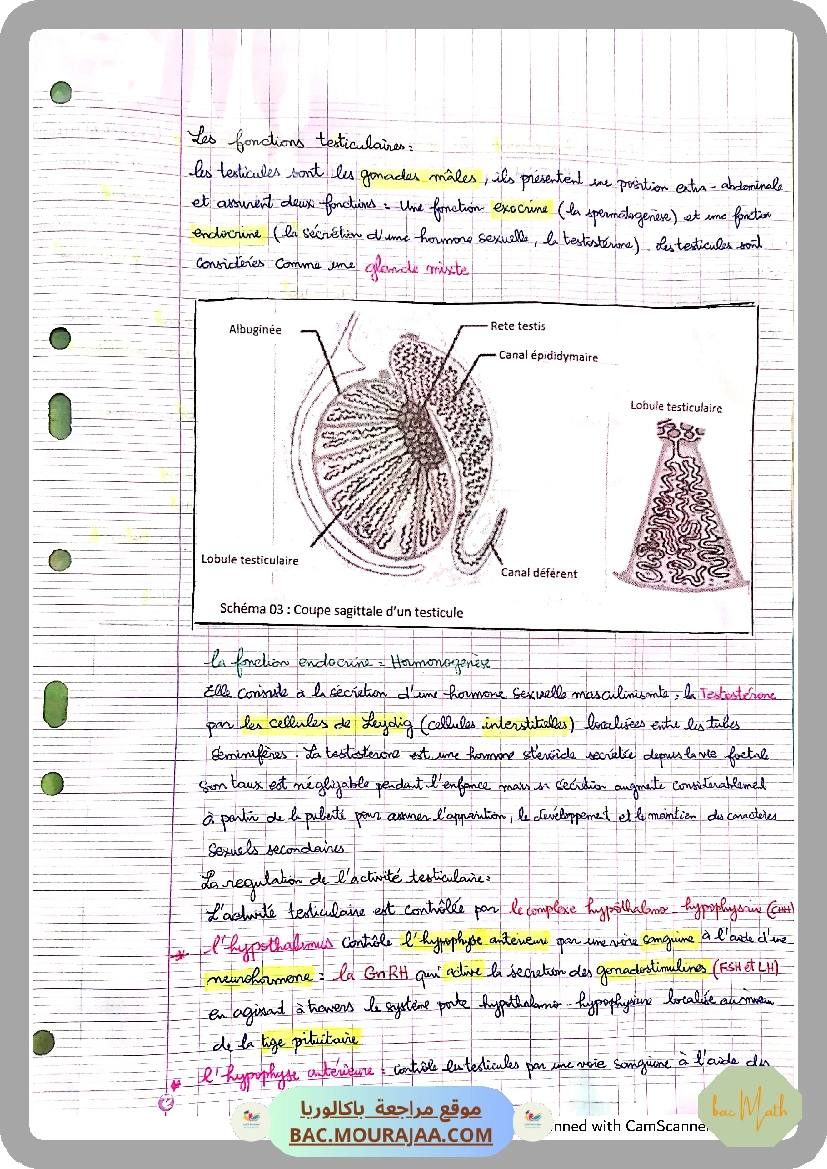 Les fonctions testiculaires:
les testicules sont les gonades mâles, ils présentent une position extra-abdominale
et assurent deux fonctions : Une fonction exocrine (la spermatogenèse) et une fonction
endocrine (la sécrétion d'une hormone sexuelle, la testostérone). Les testicules sont
considérés comme une glande mixte
Albuginée
Rete testis
Canal épididymaire
Lobule testiculaire
Lobule testiculaire
Canal déférent
Schéma 03 : Coupe sagittale d'un testicule
la fonction endocrine = Hormonogenèse
Elle consiste à la sécrétion d'une hormone sexuelle masculinisante : la Testostérone
par les cellules de Leydig (cellules interstitielles) localisées entre les tubes
séminifères. La testosterone est une hormone stéroïde secrétée depuis la vie foetale
son taux est négligable pendant l'enfance mais sa sécrétion augmente considerablement
à partir de la puberté pour assurer l'apparition, le développement et le maintien des caractères
sexuels secondaires
La regulation de l'activité testiculaire:
L'activité testiculaire est contrôlée par le complexe hypothalamo-hypophysaire (CHH)
* l'hypothalamus contrôle l'hypophyse antérieure par une voie sanguine à l'aide d'une
neurohormone : la GnRH qui active la secretion des gonadostimulines (FSH et LH)
en agissant à travers le système porte hypothalamo-hypophysaire localisé au niveau
de la tige pituitaire
* l'hypophyse antérieure : contrôle les testicules par une voie sanguine à l'aide des
موقع مراجعة باكالوريا
BAC.MOURAJAA.COM
nned with CamScanner
bac Math